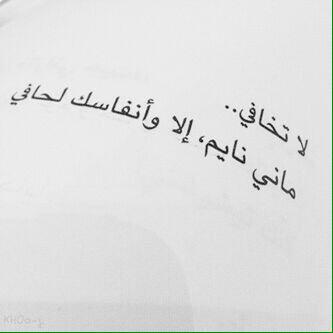 لا تخافي..
ماني نايم، إلا وأنفاسك لحافي